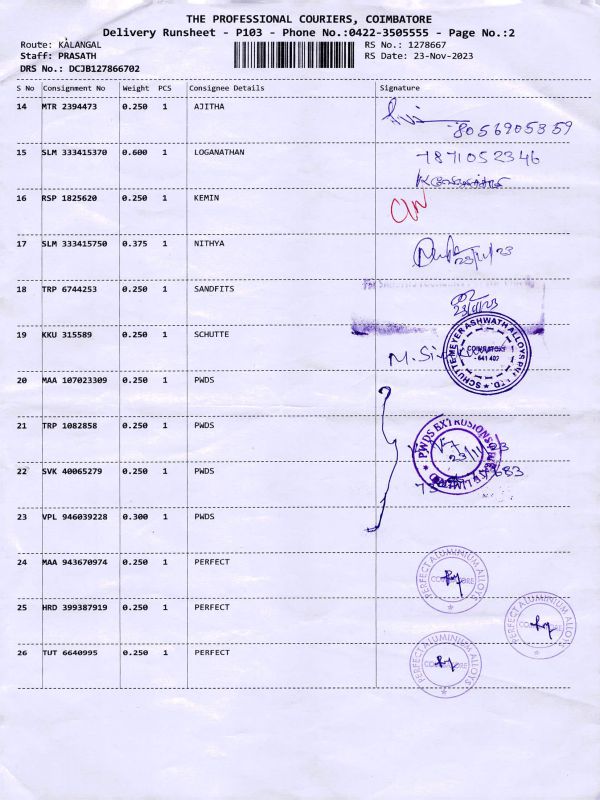 THE PROFESSIONAL COURIERS, COIMBATORE
Delivery Runsheet - P103 - Phone No.:0422-3505555 - Page No.:2
Route: KALANGAL RS No.: 1278667
Staff: PRASATH RS Date: 23-Nov-2023
DRS No.: DCJB127866702
S No Consignment No Weight PCS Consignee Details Signature
14 MTR 2394473 0.250 1 AJITHA
8056905359
15 SLM 333415370 0.600 1 LOGANATHAN 7871052346
16 RSP 1825620 0.250 1 KEMIN
17 SLM 333415750 0.375 1 NITHYA
23/11/23
18 TRP 6744253 0.250 1 SANDFITS
23/11/23
19 KKU 315589 0.250 1 SCHUTTE
SCHUTTE MEYER ASHWATH ALLOYS PVT. LTD.
COIMBATORE
- 641 402
20 MAA 107023309 0.250 1 PWDS
21 TRP 1082858 0.250 1 PWDS
PWDS EXTRUSIONS
22 SVK 40065279 0.250 1 PWDS
23 VPL 946039228 0.300 1 PWDS
24 MAA 943670974 0.250 1 PERFECT
PERFECT ALUMINIUM ALLOYS
25 HRD 399387919 0.250 1 PERFECT
PERFECT ALUMINIUM ALLOYS
26 TUT 6640995 0.250 1 PERFECT
PERFECT ALUMINIUM ALLOYS